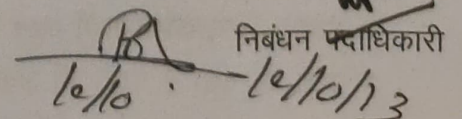 निबंधन पदाधिकारी
10/10. 10/10/13